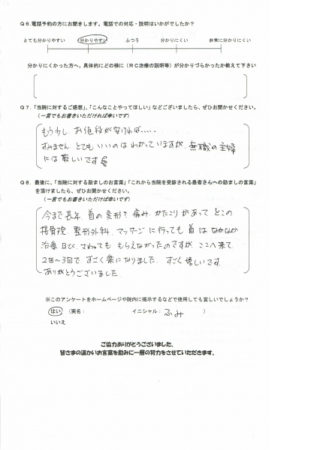 Q6.電話予約の方にお聞きします。電話での対応・説明はいかがでしたか?
とても分かりやすい 分かりやすい ふつう 分かりにくい 非常に分かりにくい
分かりにくかった方へ。具体的にどの様に(RC治療の説明等)が分かりづらかったか教えて下さい
Q7.「当院に対するご感想」、「こんなことやってほしい」などございましたら、ぜひお聞かせください。
(一言でもお書きいただければ幸いです)
もう少し お値段が安ければ.....
すみません とてもいいのはわかっていますが 無職の主婦
には厳しいです
Q8.最後に、「当院に対する励ましのお言葉」「これから当院を受診される患者さんへの励ましの言葉」
を頂けましたら、ぜひお聞かせください。
(一言でもお書きいただければ幸いです)
今まで長年 首の変形で痛み、かたこりがあって どこの
接骨院 整形外科 マッサージに行っても 首はなかなか
治療 さわっても もらえなかったのですが ここへ来て
2回〜3回で すごく楽になりました。すごく嬉しいです
ありがとうございました
※このアンケートをホームページや院内に掲示するなどで使用しても宜しいでしょうか?
はい (実名: イニシャル: ふみ )
いいえ
ご協力ありがとうございました。
皆さまの温かいお言葉を励みに一層の努力をさせていただきます。